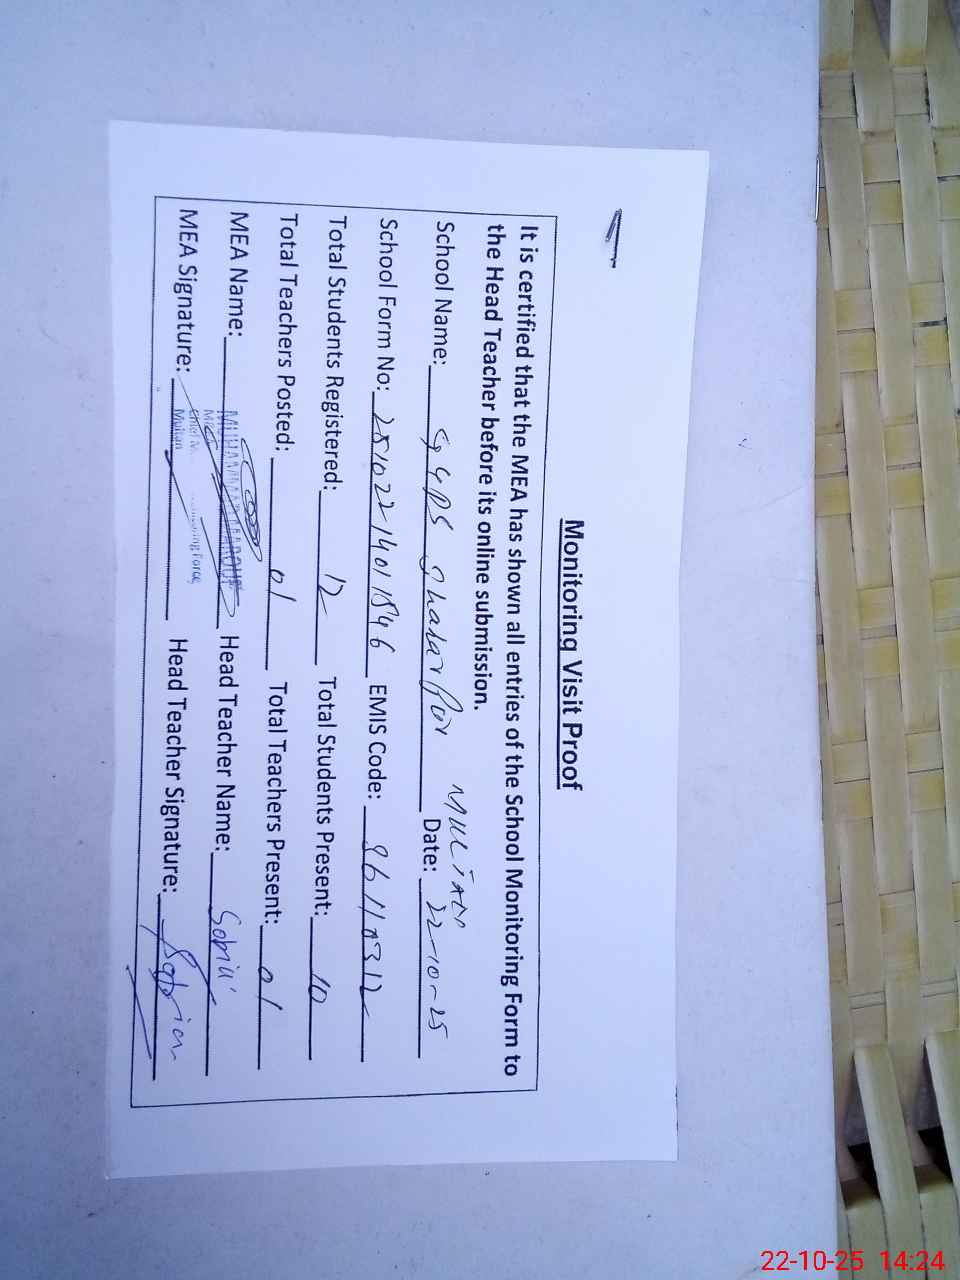 Monitoring Visit Proof
It is certified that the MEA has shown all entries of the School Monitoring Form to
the Head Teacher before its online submission.
Multan
School Name: Date: 22-10-25
School Form No: 25102214011546 EMIS Code: 36110312
Total Students Registered: 12 Total Students Present: 10
Total Teachers Posted: 01 Total Teachers Present: 01
MEA Name: MUHAMMAD Head Teacher Name: Sobia
MEA Signature: Multan Head Teacher Signature: Sobia
22-10-25 14:24